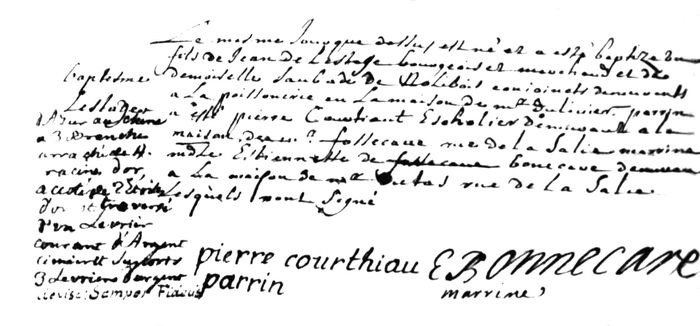 Le mesme Jour que dessus est né et a esté baptizé un
fils de Jean de Lestage bourgeois et marchand et de
demoiselle Saubade de Nolibois conjoints demeurants
a La poissonerie en La maison de mr Dulivier, parrin
a esté pierre Courtiaut Escholier demeurant a la
maison de fossecave rue de la Salie marrine
mdlle Estiennette de fossecave bonecave demeurant
a La maison de mr rue de La Salie
Lesquels ront signé
baptesme
Lestage
d'Azur au chene
a 3 branche
arraché de
racine d'or,
acosté de 2 étoiles
d'or et traversé
d'un Levrier
courant d'Argent
cimier et suports
3 Levriers d'argent
devise: Semper Fidelis
pierre courthiau
parrin
E Bonnecave
marrine